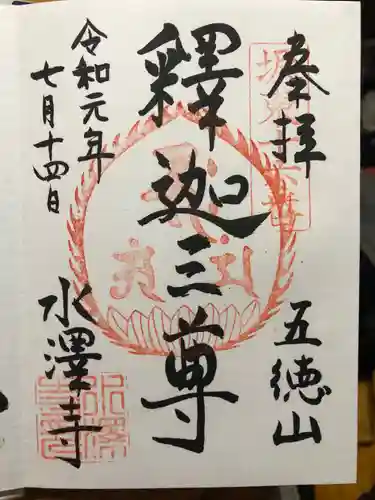 奉拝
五徳山
釋迦三尊
令和元年
七月十四日
水澤寺